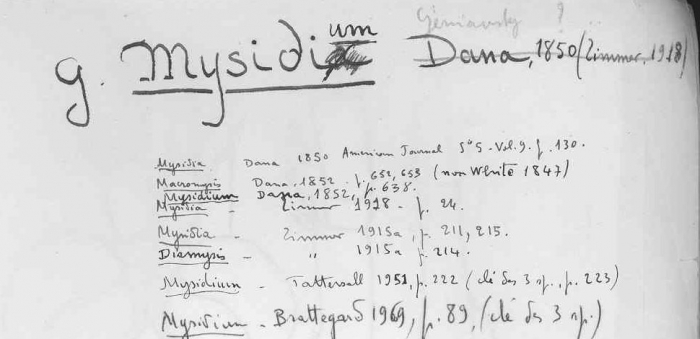 um
g. Mysidi Dana, 1850 (Zimmer, 1918)
Mysidia Dana 1850 American Journal Sº 5 - Vol. 9. p. 130.
Macromysis Dana, 1852. p. 652, 653 (non White 1847)
Mysidium Dana, 1852, p. 638.
Mysidia - Zimmer 1918 - p. 24.
Mysidia - Zimmer 1915a, p. 211, 215.
Diamysis - " 1915a p. 214.
Mysidium - Tattersall 1951, p. 222 (clé des 3 sp., p. 223)
Mysidium - Brattegard 1969, p. 89, (clé des 3 sp.)